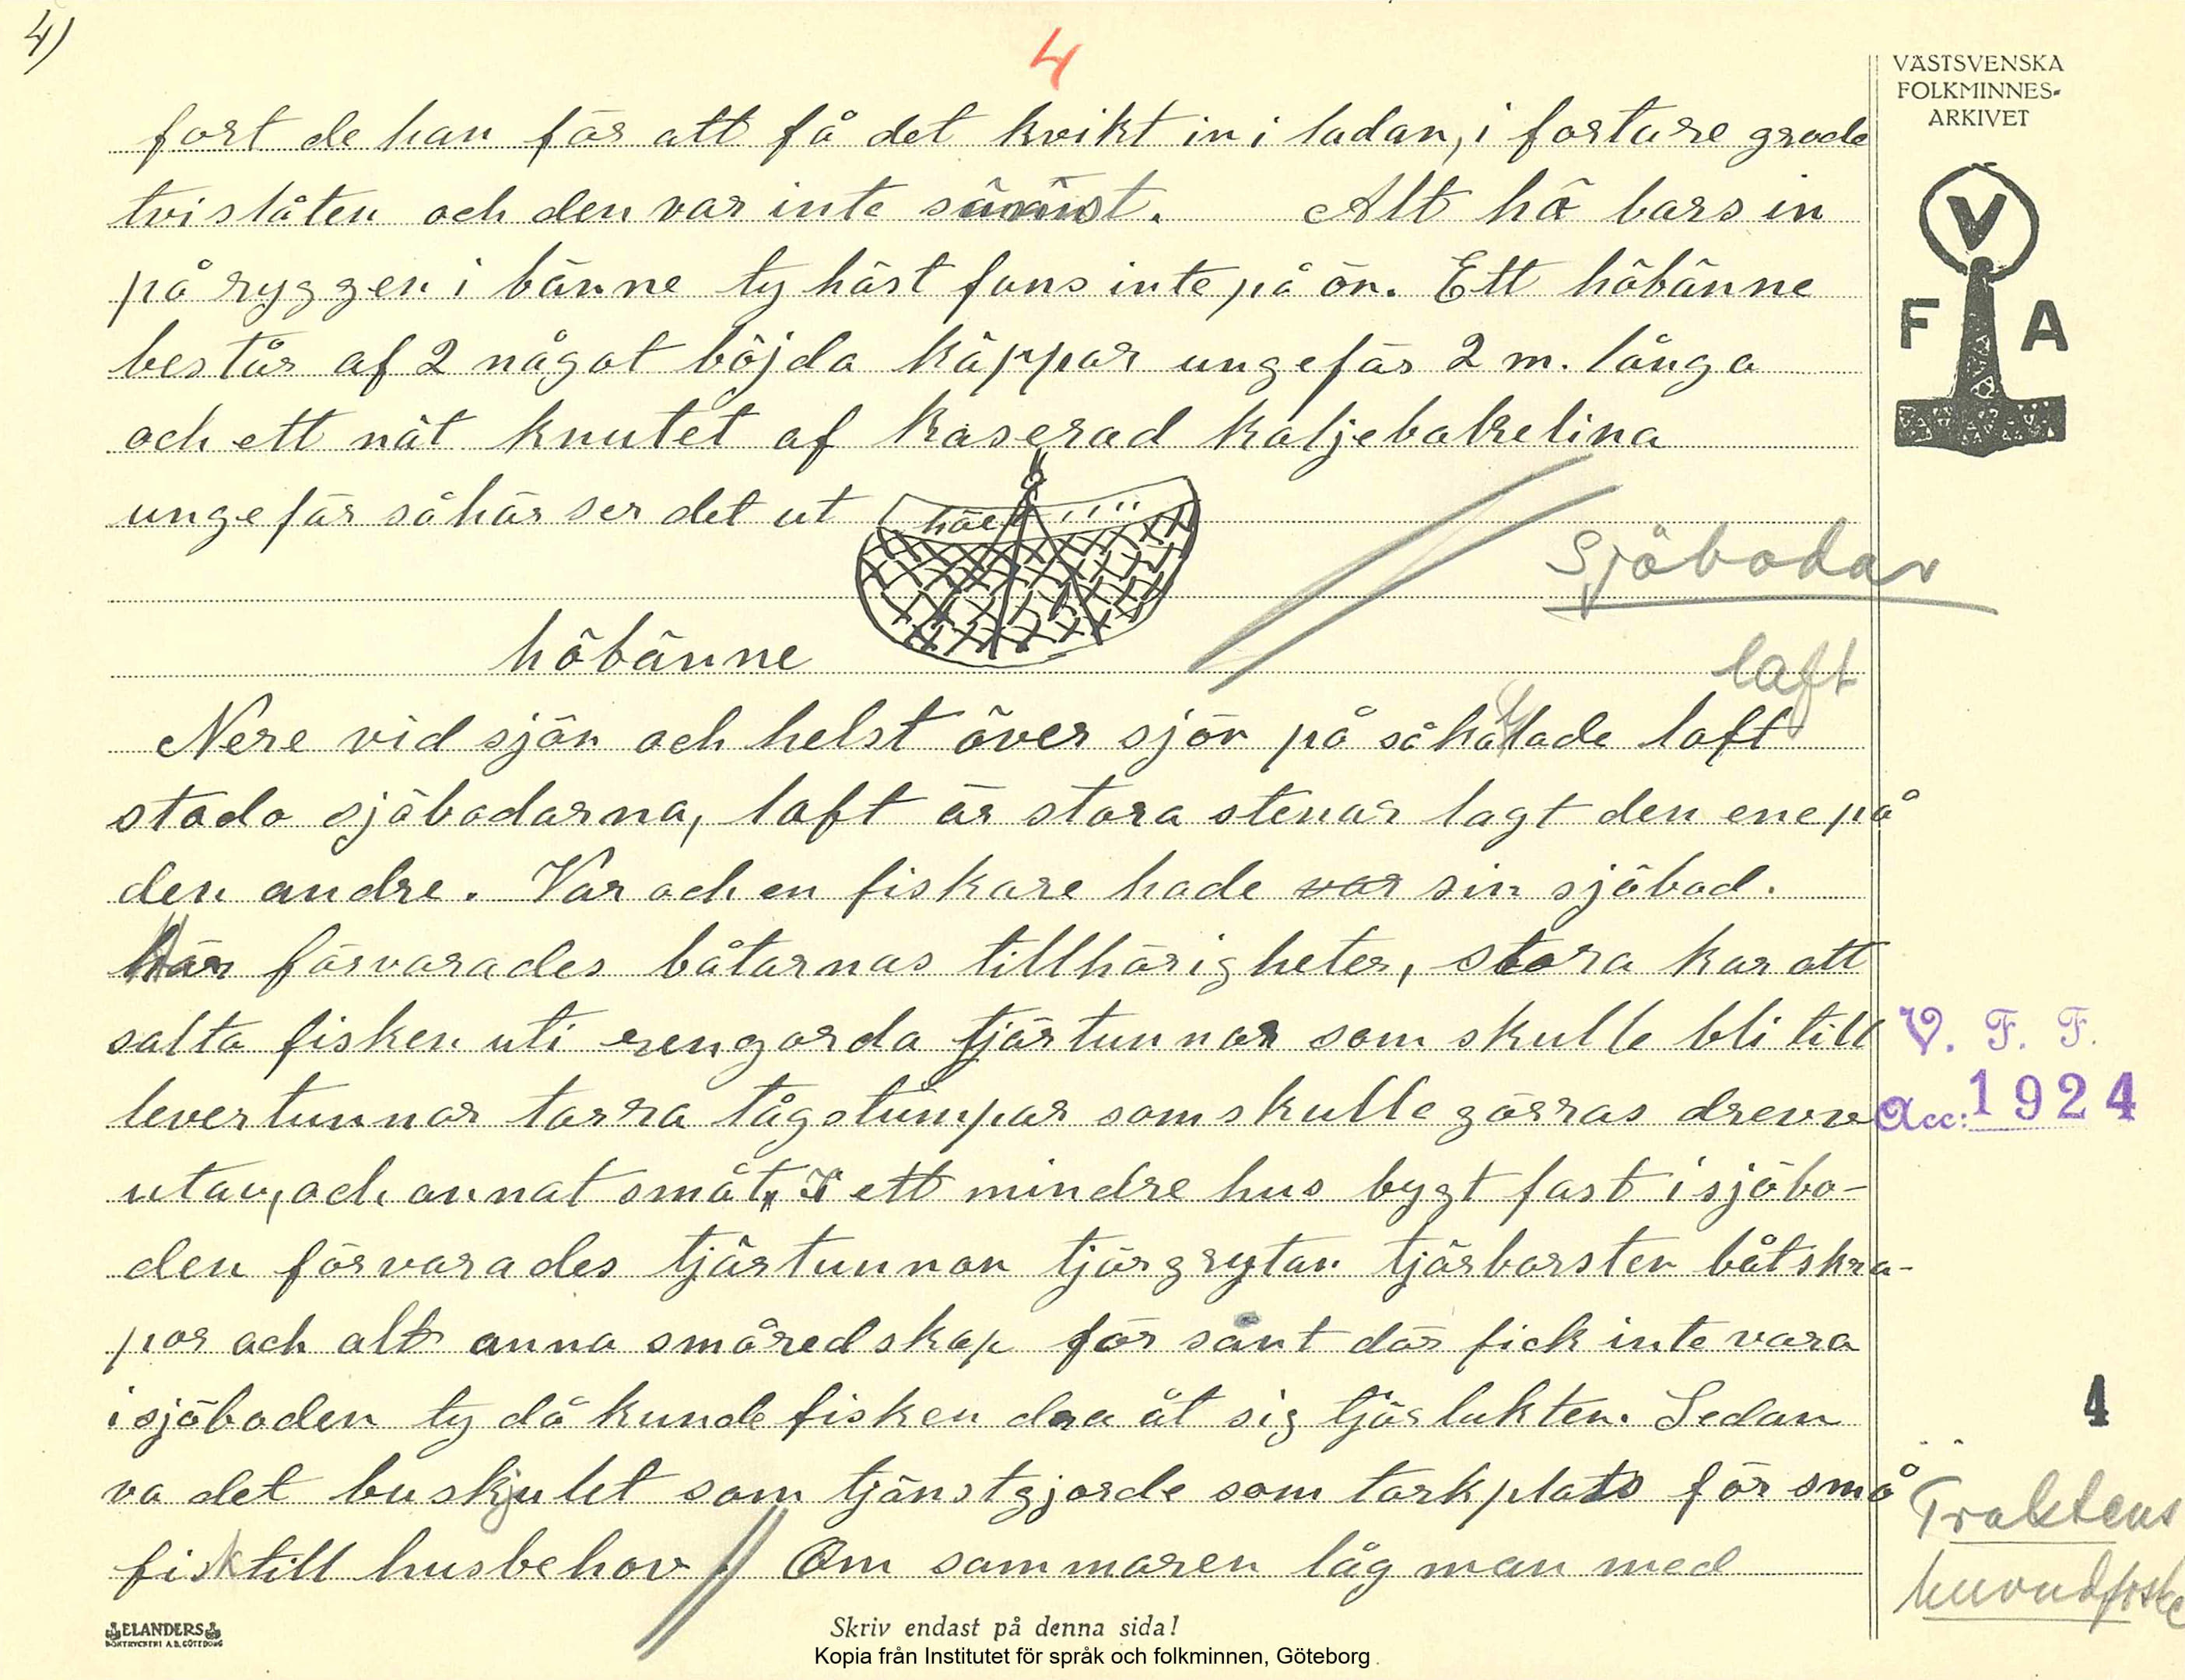 4)
4
VÄSTSVENSKA
FOLKMINNES-
ARKIVET
V
F A
fort de han för att få det kvikt in i ladan, i fortare grode
tvislåten och den var inte Alt hö bars in
på ryggen i bänne ty häst fans inte på ön. Ett höbänne
består af 2 något böjda käppar ungefär 2 m. långa
och ett nät knutet af kaserad koljebakelina
ungefär såhär ser det ut
Sjöbodar
höbänne
laft
Nere vid sjön och helst över sjön på såkallade loft
stodo sjöbodarna, loft är stora stenar lagt den ene på
den andre. Var och en fiskare hade var sin sjöbod.
Här förvarades båtarnas tillhörigheter, stora kar att
salta fisken uti rengorda tjärtunnor som skulle bli till
levertunnor torra tågstumpar som skulle görras drevv
utav, och annat småt, I ett mindre hus bygt fast i sjöbo-
den förvarades tjärtunnan tjärgrytan tjärborsten båtskra-
por och alt anna småredskap för sånt där fick inte vara
i sjöboden ty då kunde fisken dra åt sig tjärlukten. Sedan
va det buskjulet som tjänstgjorde som torkplats för små
fisk till husbehov. Om sommaren låg man med
V. F. F.
Acc: 1924
4
Traktens
huvudfiske
ELANDERS
BOKTRYCKERI A.B. GÖTEBORG
Skriv endast på denna sida!
Kopia från Institutet för språk och folkminnen, Göteborg